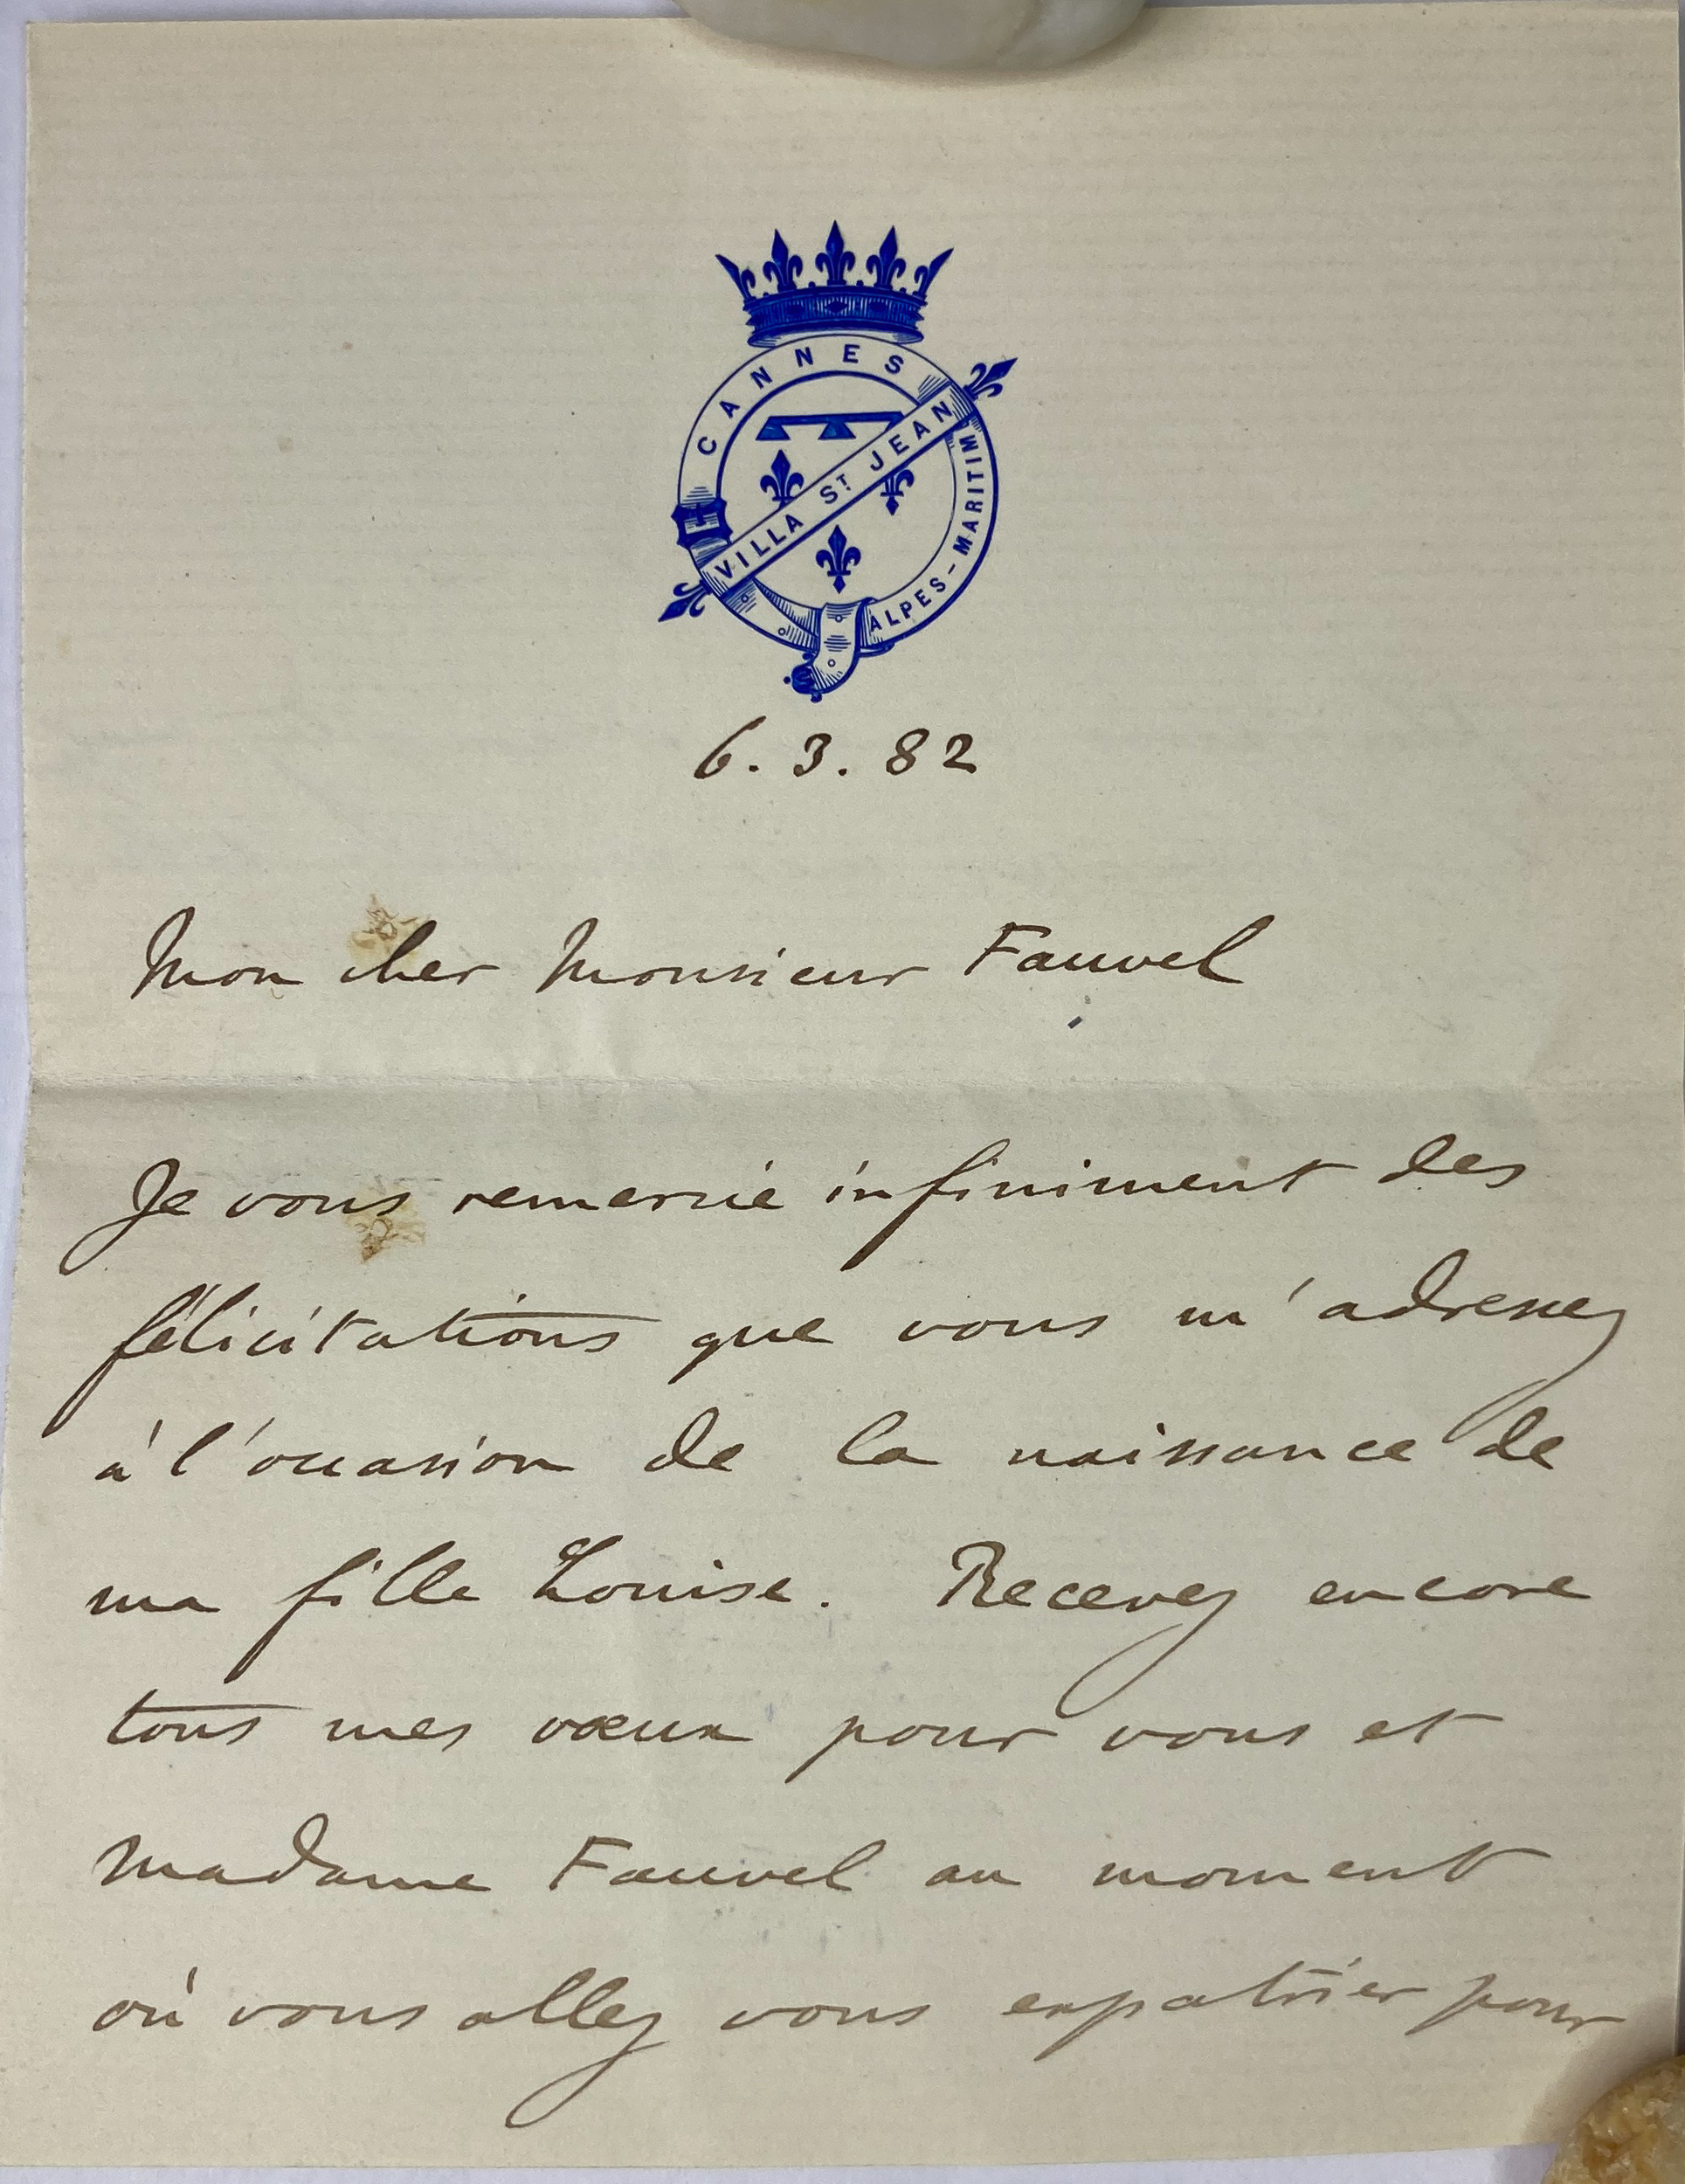 CANNES
VILLA ST JEAN
ALPES-MARITIM
6. 3. 82
Mon cher Monsieur Fauvel
Je vous remercie infiniment des
félicitations que vous m'adressez
à l'occasion de la naissance de
ma fille Louise. Recevez encore
tous mes vœux pour vous et
Madame Fauvel au moment
où vous allez vous expatrier pour